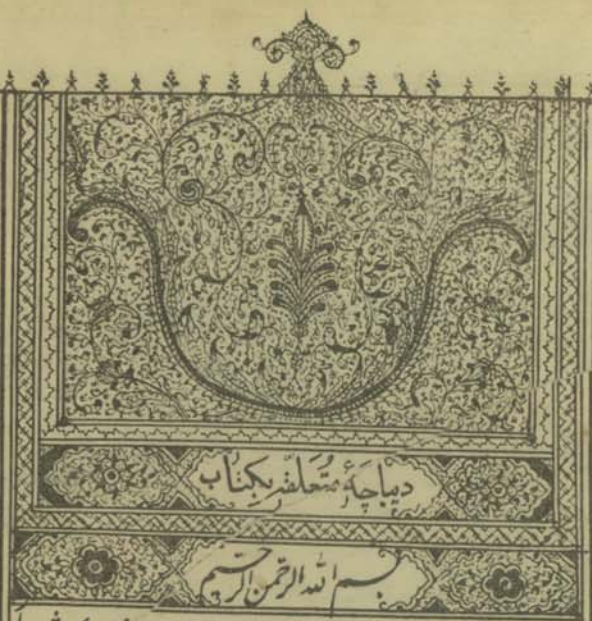 دیباچهٔ متعلق بکتاب
بسم الله الرحمن الرحیم